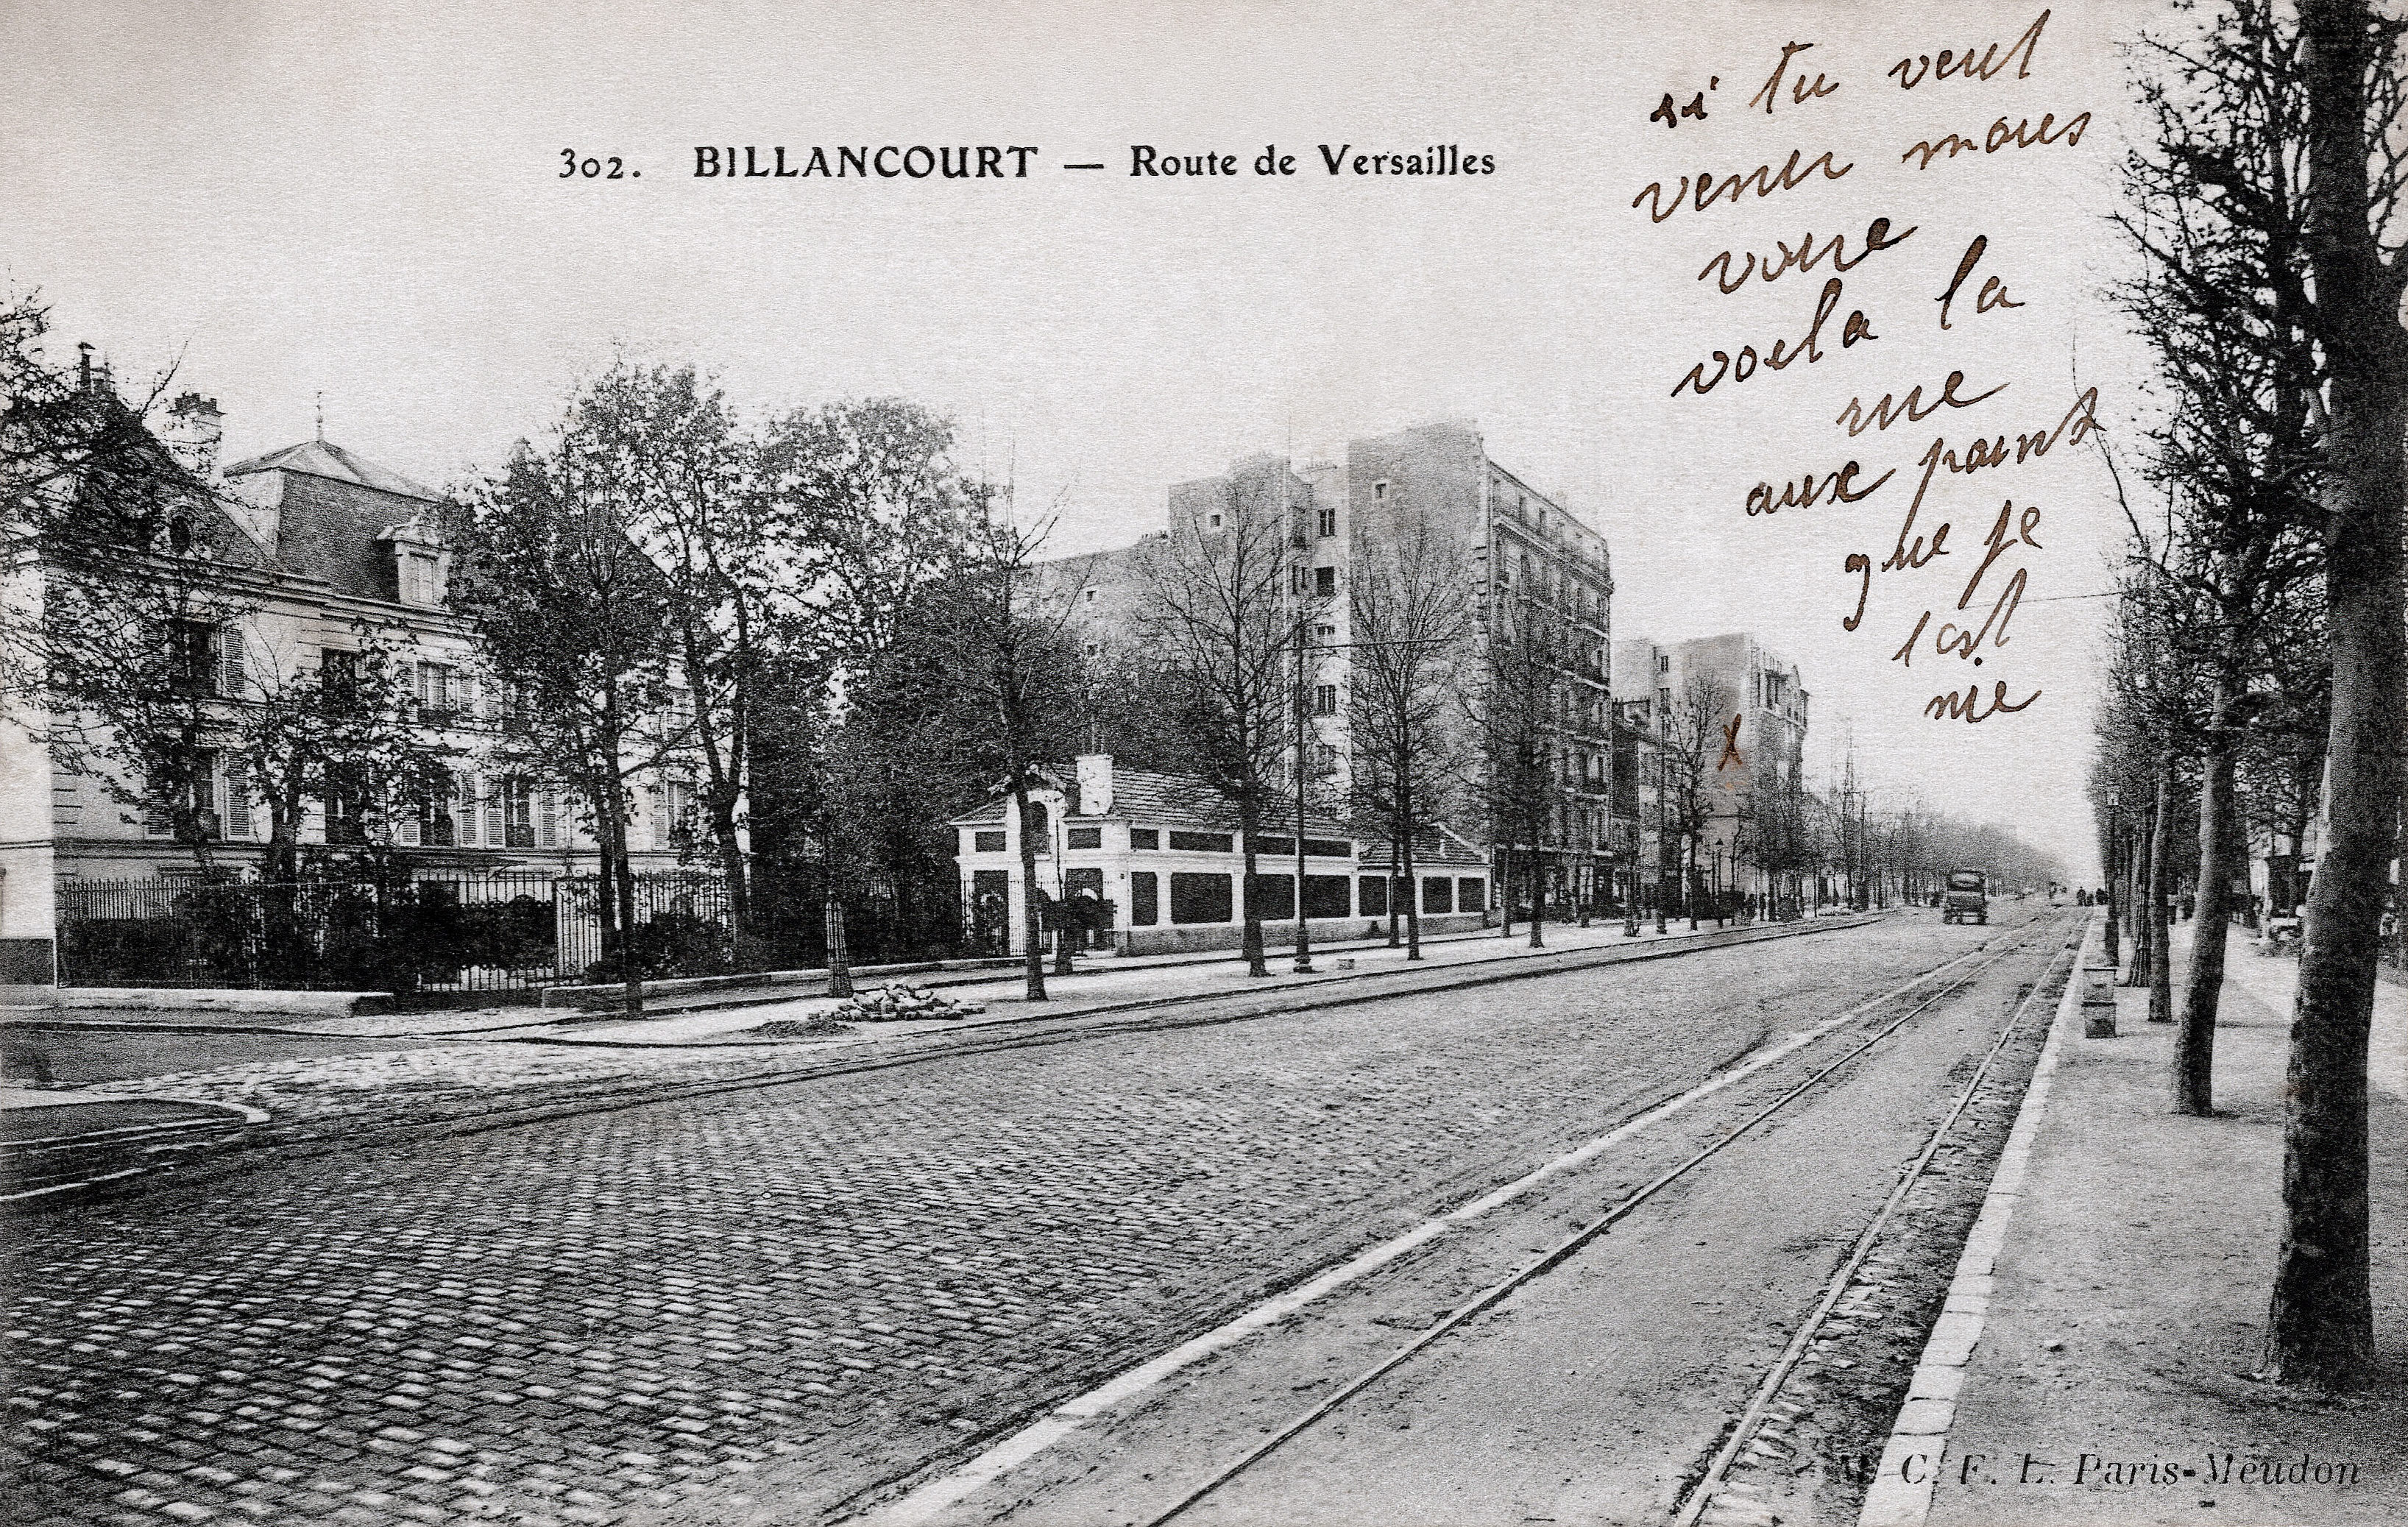 302. BILLANCOURT — Route de Versailles
si tu veut
venir nous
voire
voila la
rue
aux point
que je
est
nie
C. F. L. Paris-Meudon